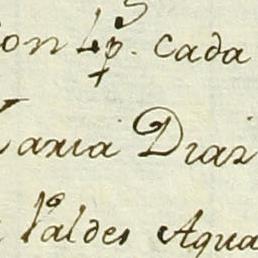 on 4p. cada
Maria Diaz
Valdes Agua